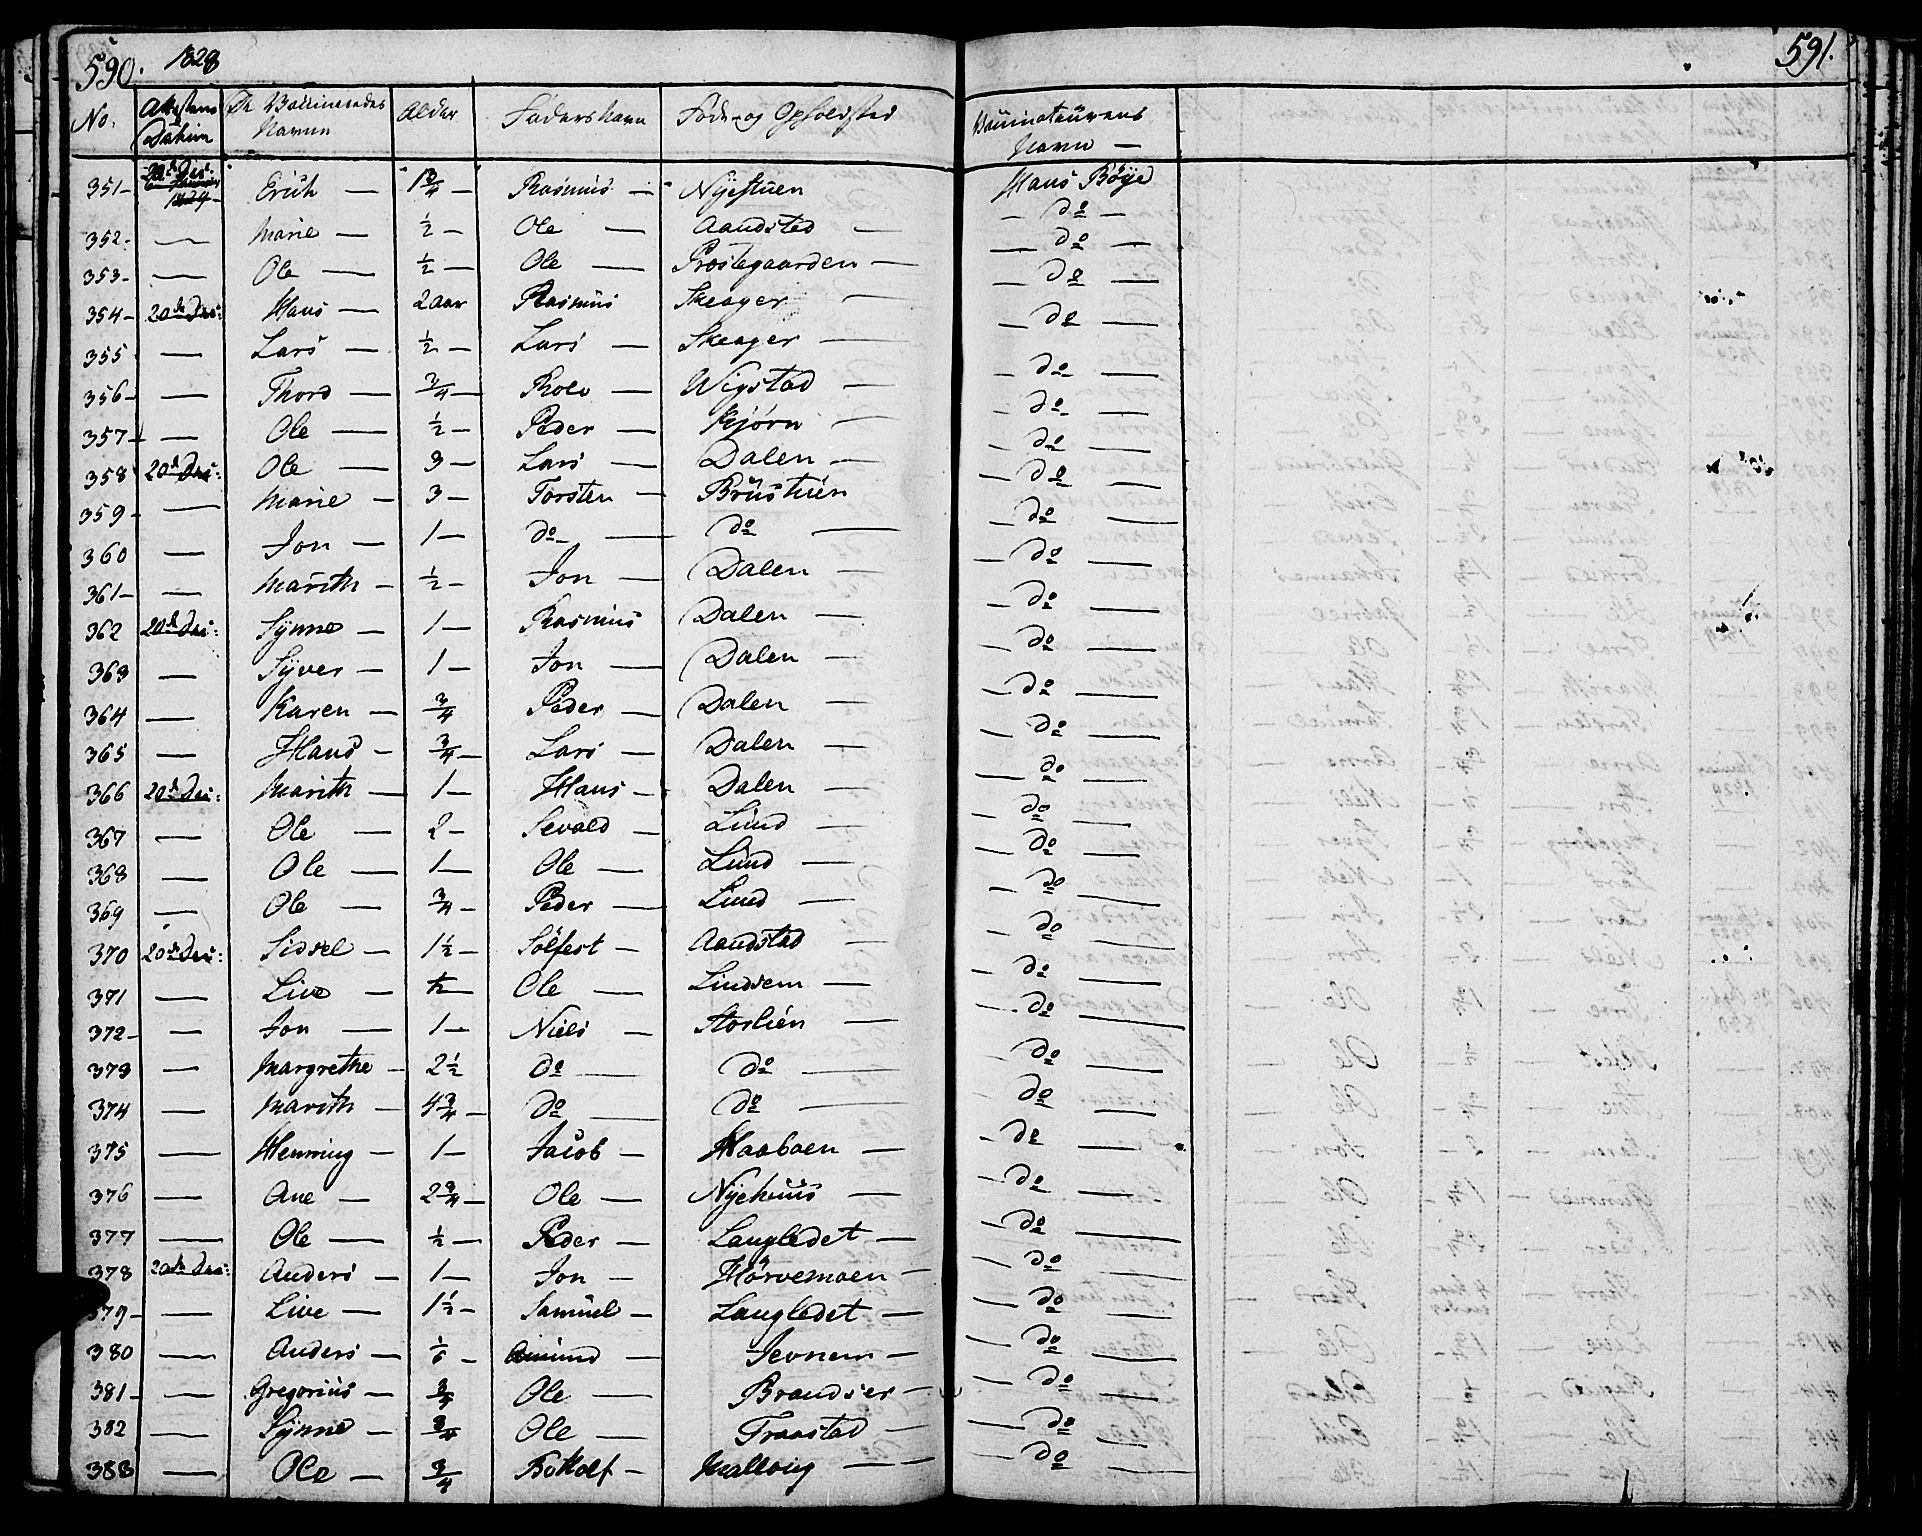 590. 1828 591.
No. Attestens Datum De Vaccineredes Navne Alder Faders Navn Føde- og Opholdsted Vaccinateurens Navn —
351- 20de Dec: 1829 Erich — 1 3/4 — Rasmus — Nyestuen Hans Bøye
352- — Marie — 1/2 — Ole — Aandstad — — do —
353- — Ole — 1/2 — Ole — Præstegaarden — — do —
354- 20de Dec: Hans — 2 aar Rasmus Skeager — — do —
355 — Lars — 1/2 — Lars — Skeager — — do —
356- — Thord — 3/4 — Rolv — Wigstad — — do —
357- — Ole — 1/2 — Peder — Kjørn — — do —
358 20de Dec: Ole — 3 — Lars — Dalen — — do —
359- — Marie — 3 — Torsten — Brustuen — do —
360 — Jon — 1 — do — do — — do —
361- — Marith — 1/2 — Jon — Dalen — — do —
362 20de Dec: Synne — 1 — Rasmus Dalen — — do —
363 — Syver — 1 — Jon — Dalen — — do —
364 — Karen — 3/4 Peder — Dalen — — do —
365 — Hans — 3/4 — Lars — Dalen — — do —
366 20de Dec: Marith — 1 — Hans — Dalen — — do —
367 — Ole — 2 — Sevald — Lund — — do —
368 — Ole — 1 — Ole — Lund — — do —
369 — Ole — 3/4 — Peder — Lund — — do —
370 20de Dec: Sidsel — 1 1/2 — Solfest — Aandstad — — do —
371 — Live — 1/2 — Ole — Lindsem — — do —
372- — Jon — 1 — Niels — Storlien — — do —
373 — Margrethe — 2 1/2 do — do — — do —
374 — Marith — 4 3/4 — do — do — — do —
375 — Hemming — 1 — Jacob — Maaboen — — do —
376 — Ane — 2 3/4 — Ole — Nyehuus — — do —
377 — Ole — 1/2 — Peder — Langledet — — do —
378 20de Dec: Anders — 1 — Jon — Hørvemoen — — do —
379- — Live — 1 1/2 — Samuel — Langledet — — do —
380 — Anders — 1/6 — Amund — Jevnem — — do —
381- — Gregorius — 3/4 Ole — Brandser — — do —
382 — Synne — 3/4 Ole — Traastad — — do —
383 — Ole — 3/4 Botholf — Malling — — do —